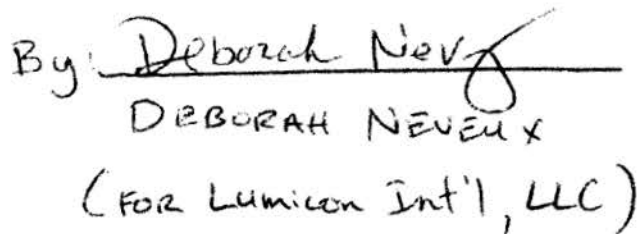 By: Deborah Nev
DEBORAH NEVEUX
(FOR Lumicon Int'l, LLC)